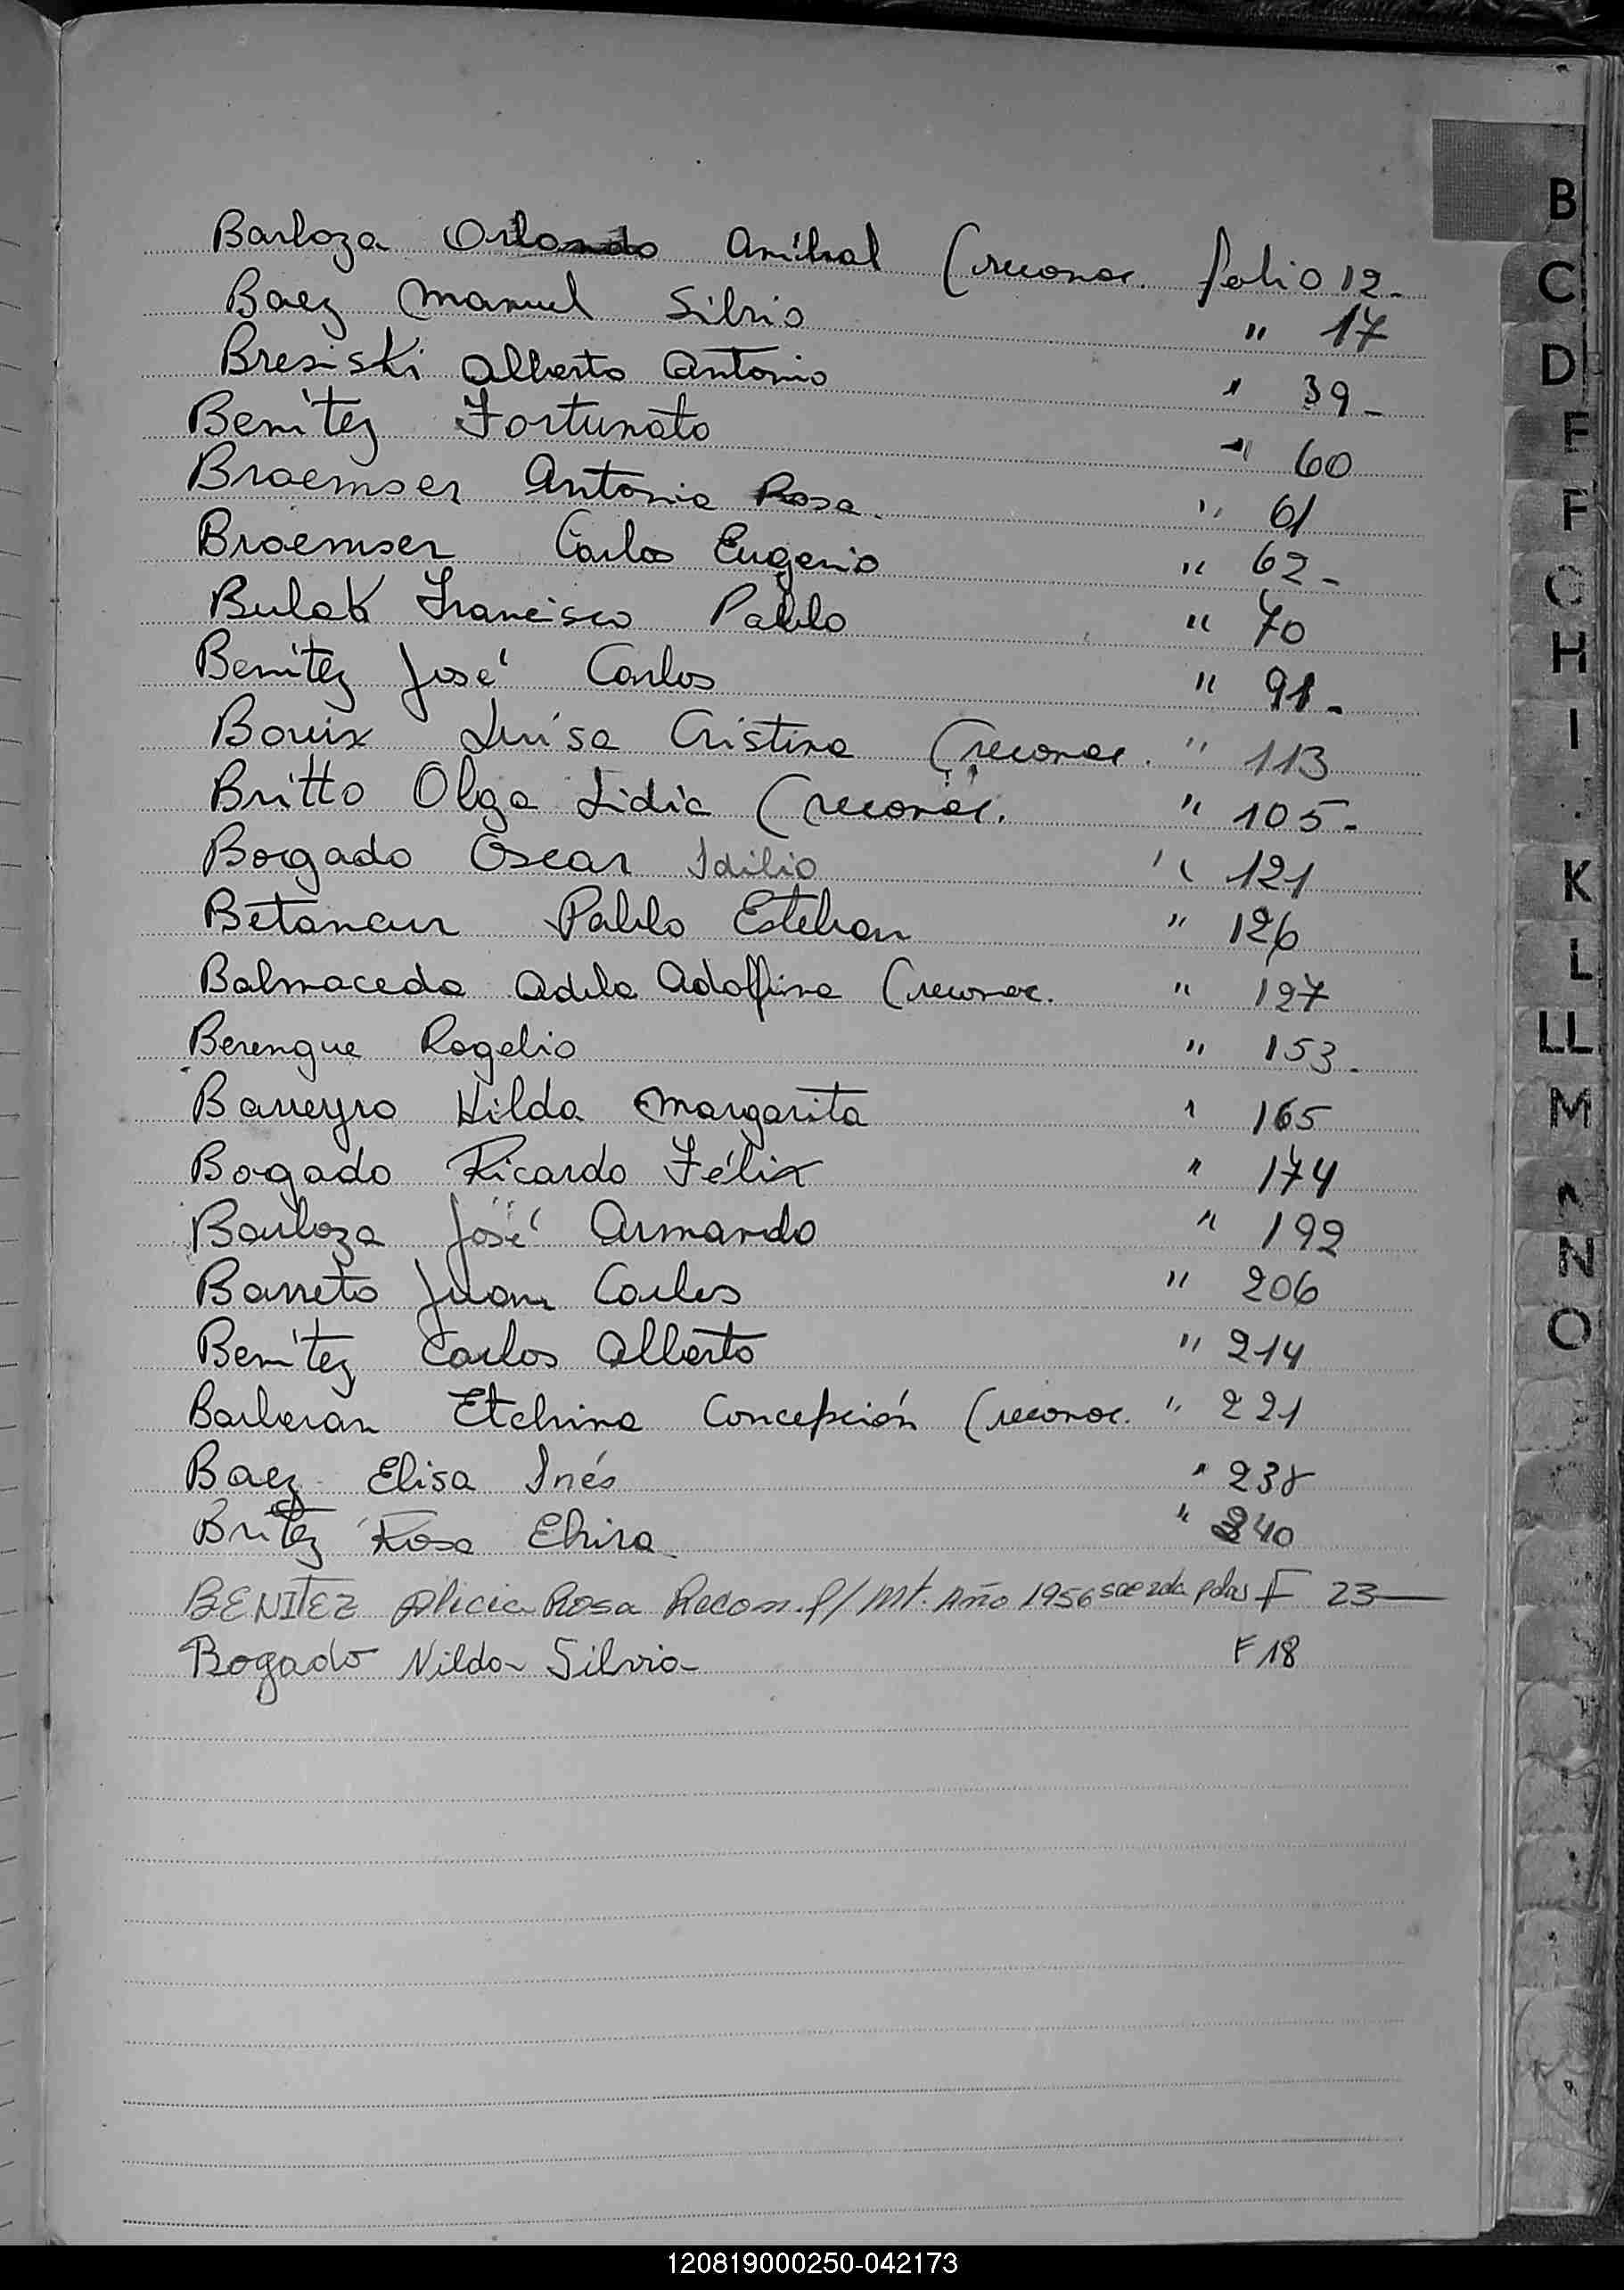 Barboza Orlando Aníbal (reconoc. folio 12-
Baez Manuel Silvio " 17
Bresiski Alberto Antonio " 39-
Benítez Fortunato " 60
Braemser Antonia Rosa. " 61
Braemser Carlos Eugenio " 62-
Bulak Francisco Pablo " 70
Benítez José Carlos " 91-
Bouix Luisa Cristina (reconoc. " 113
Britto Olga Lidia (reconoc. " 105-
Bogado Oscar Idilio " 121
Betancur Pablo Esteban " 126
Balmaceda Adela Adolfina (reconoc. " 127
Berengue Rogelio " 153-
Barreyro Hilda Margarita " 165
Bogado Ricardo Félix " 174
Barboza José Armando " 192
Barreto Juan Carlos " 206
Benítez Carlos Alberto " 214
Barberan Etelvina Concepción (reconoc. " 221
Baez Elisa Inés " 238
Britez Rosa Elvira " 240
BENITEZ Alicia Rosa Recon. p/ Mt. Año 1956 F 23
Bogado Nilda Silvia F 18
B
C
D
E
F
G
H
I
K
L
LL
M
N
O
120819000250-042173